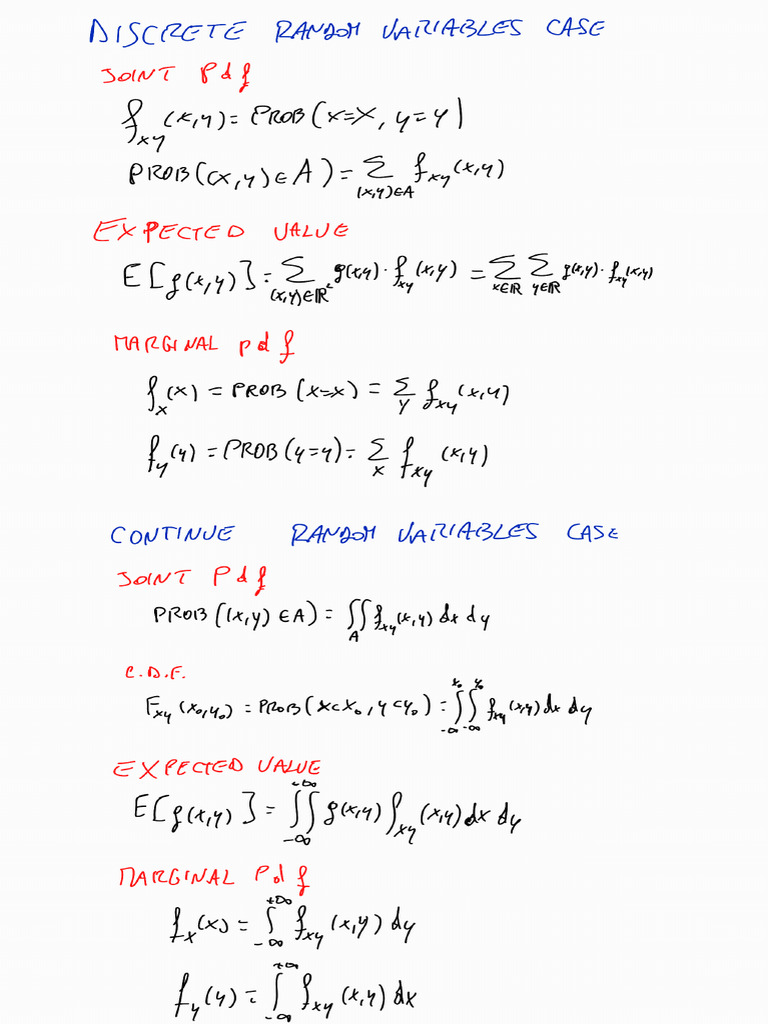 DISCRETE RANDOM VARIABLES CASE
JOINT Pdf
f_xy(x,y) = PROB(x=X, y=y)
PROB((x,y)∈A) = ∑_(x,y)∈A f_xy(x,y)
EXPECTED VALUE
E[g(x,y)] = ∑_(x,y)∈ℝ² g(x,y)·f_xy(x,y) = ∑_x∈ℝ ∑_y∈ℝ g(x,y)·f_xy(x,y)
MARGINAL pdf
f_x(x) = PROB(x=x) = ∑_y f_xy(x,y)
f_y(y) = PROB(y=y) = ∑_x f_xy(x,y)
CONTINUE RANDOM VARIABLES CASE
JOINT Pdf
PROB((x,y)∈A) = ∬_A f_xy(x,y) dx dy
C.D.F.
F_xy(x₀,y₀) = PROB(x<x₀, y<y₀) = ∫_-∞^x₀ ∫_-∞^y₀ f_xy(x,y) dx dy
EXPECTED VALUE
E[g(x,y)] = ∬_-∞^+∞ g(x,y) f_xy(x,y) dx dy
MARGINAL Pdf
f_x(x) = ∫_-∞^+∞ f_xy(x,y) dy
f_y(y) = ∫_-∞^+∞ f_xy(x,y) dx